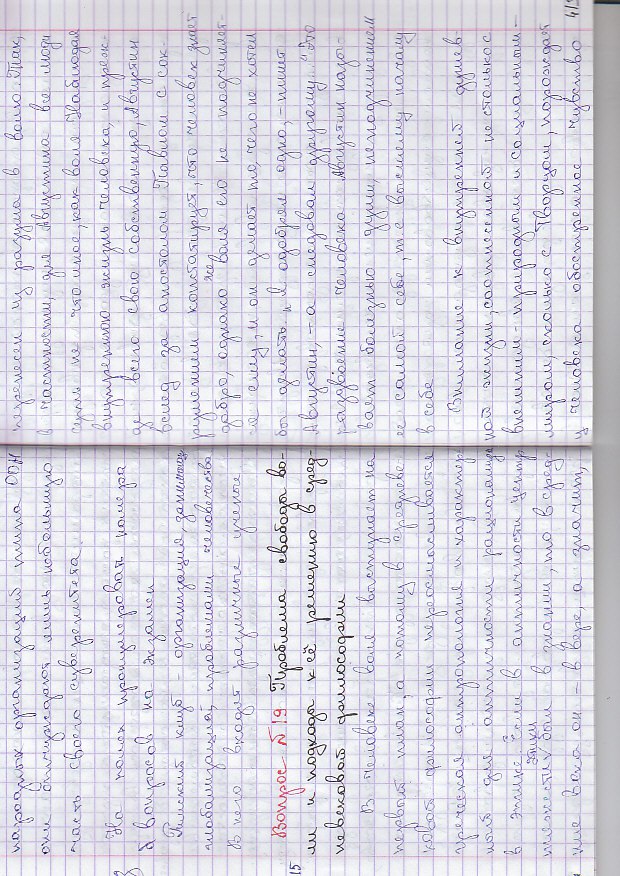 народных организаций типа ООН
они отчуждают лишь небольшую
часть своего суверенитета.
На полях пронумеровал номера
вопросов на экзамен
Римский клуб - организация,
глобализацией, проблемами человечества
В него входят различные ученые
Вопрос №19 Проблема свободы во-
ли и подходы к её решению в сред-
невековой философии
В человеке воля выступает на
первый план, а потому в средневе-
ковой философии переосмысливается
греческая антропология и характер-
ной для античности рационализм
в этике. Если в античности центр
тяжести этики был в знании, то в сред-
ние века он - в вере, а значит,
15
перенесен из разума в волю. Так,
в частности, для Августина все люди
суть не что иное, как воля. Наблюдая
внутреннюю жизнь человека, и преж-
де всего свою собственную, Августин
вслед за апостолом Павлом с сок-
рушением констатирует, что человек знает
добро, однако же воля его не подчиняет-
ся ему, и он делает то, чего не хотел
бы делать. "Я одобрял одно, - пишет
Августин, - а следовал другому". Это
раздвоение человека Августин назы-
вает болезнью души, неподчинением
её самой себе, т.е. высшему началу
в себе.
Внимание к внутренней душев-
ной жизни, соотнесенной не столько с
внешним - природным и социальным -
миром, сколько с Творцом, порождает
у человека обостренное чувство